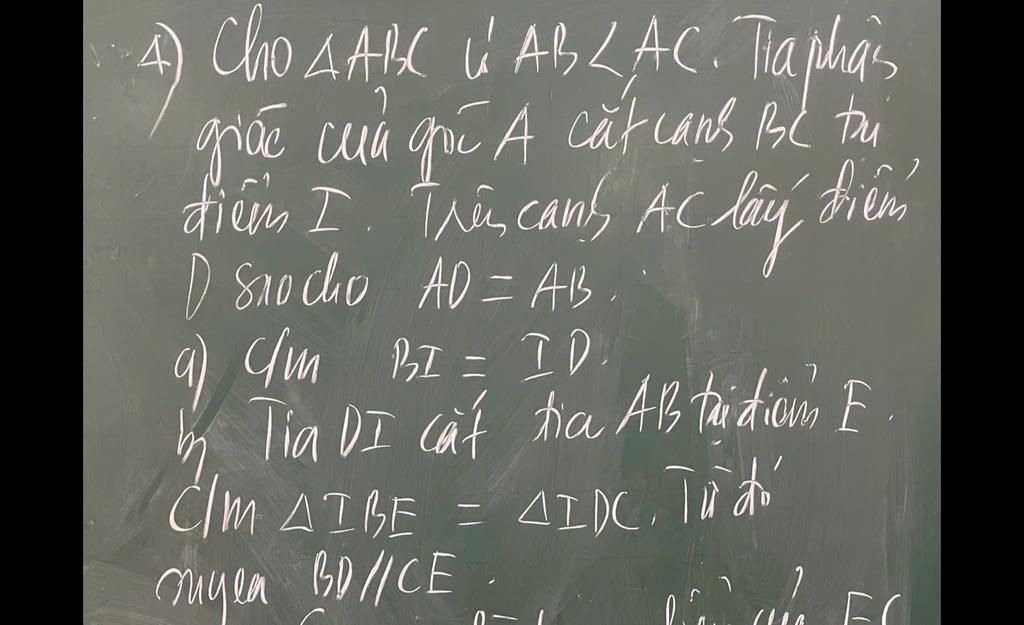 4) Cho △ABC có AB < AC. Tia phân
giác của góc A cắt cạnh BC tại
điểm I. Trên cạnh AC lấy điểm
D sao cho AD = AB.
a) C/m BI = ID.
b) Tia DI cắt tia AB tại điểm E.
C/m △IBE = △IDC. Từ đó
suy ra BD // CE.
của EC